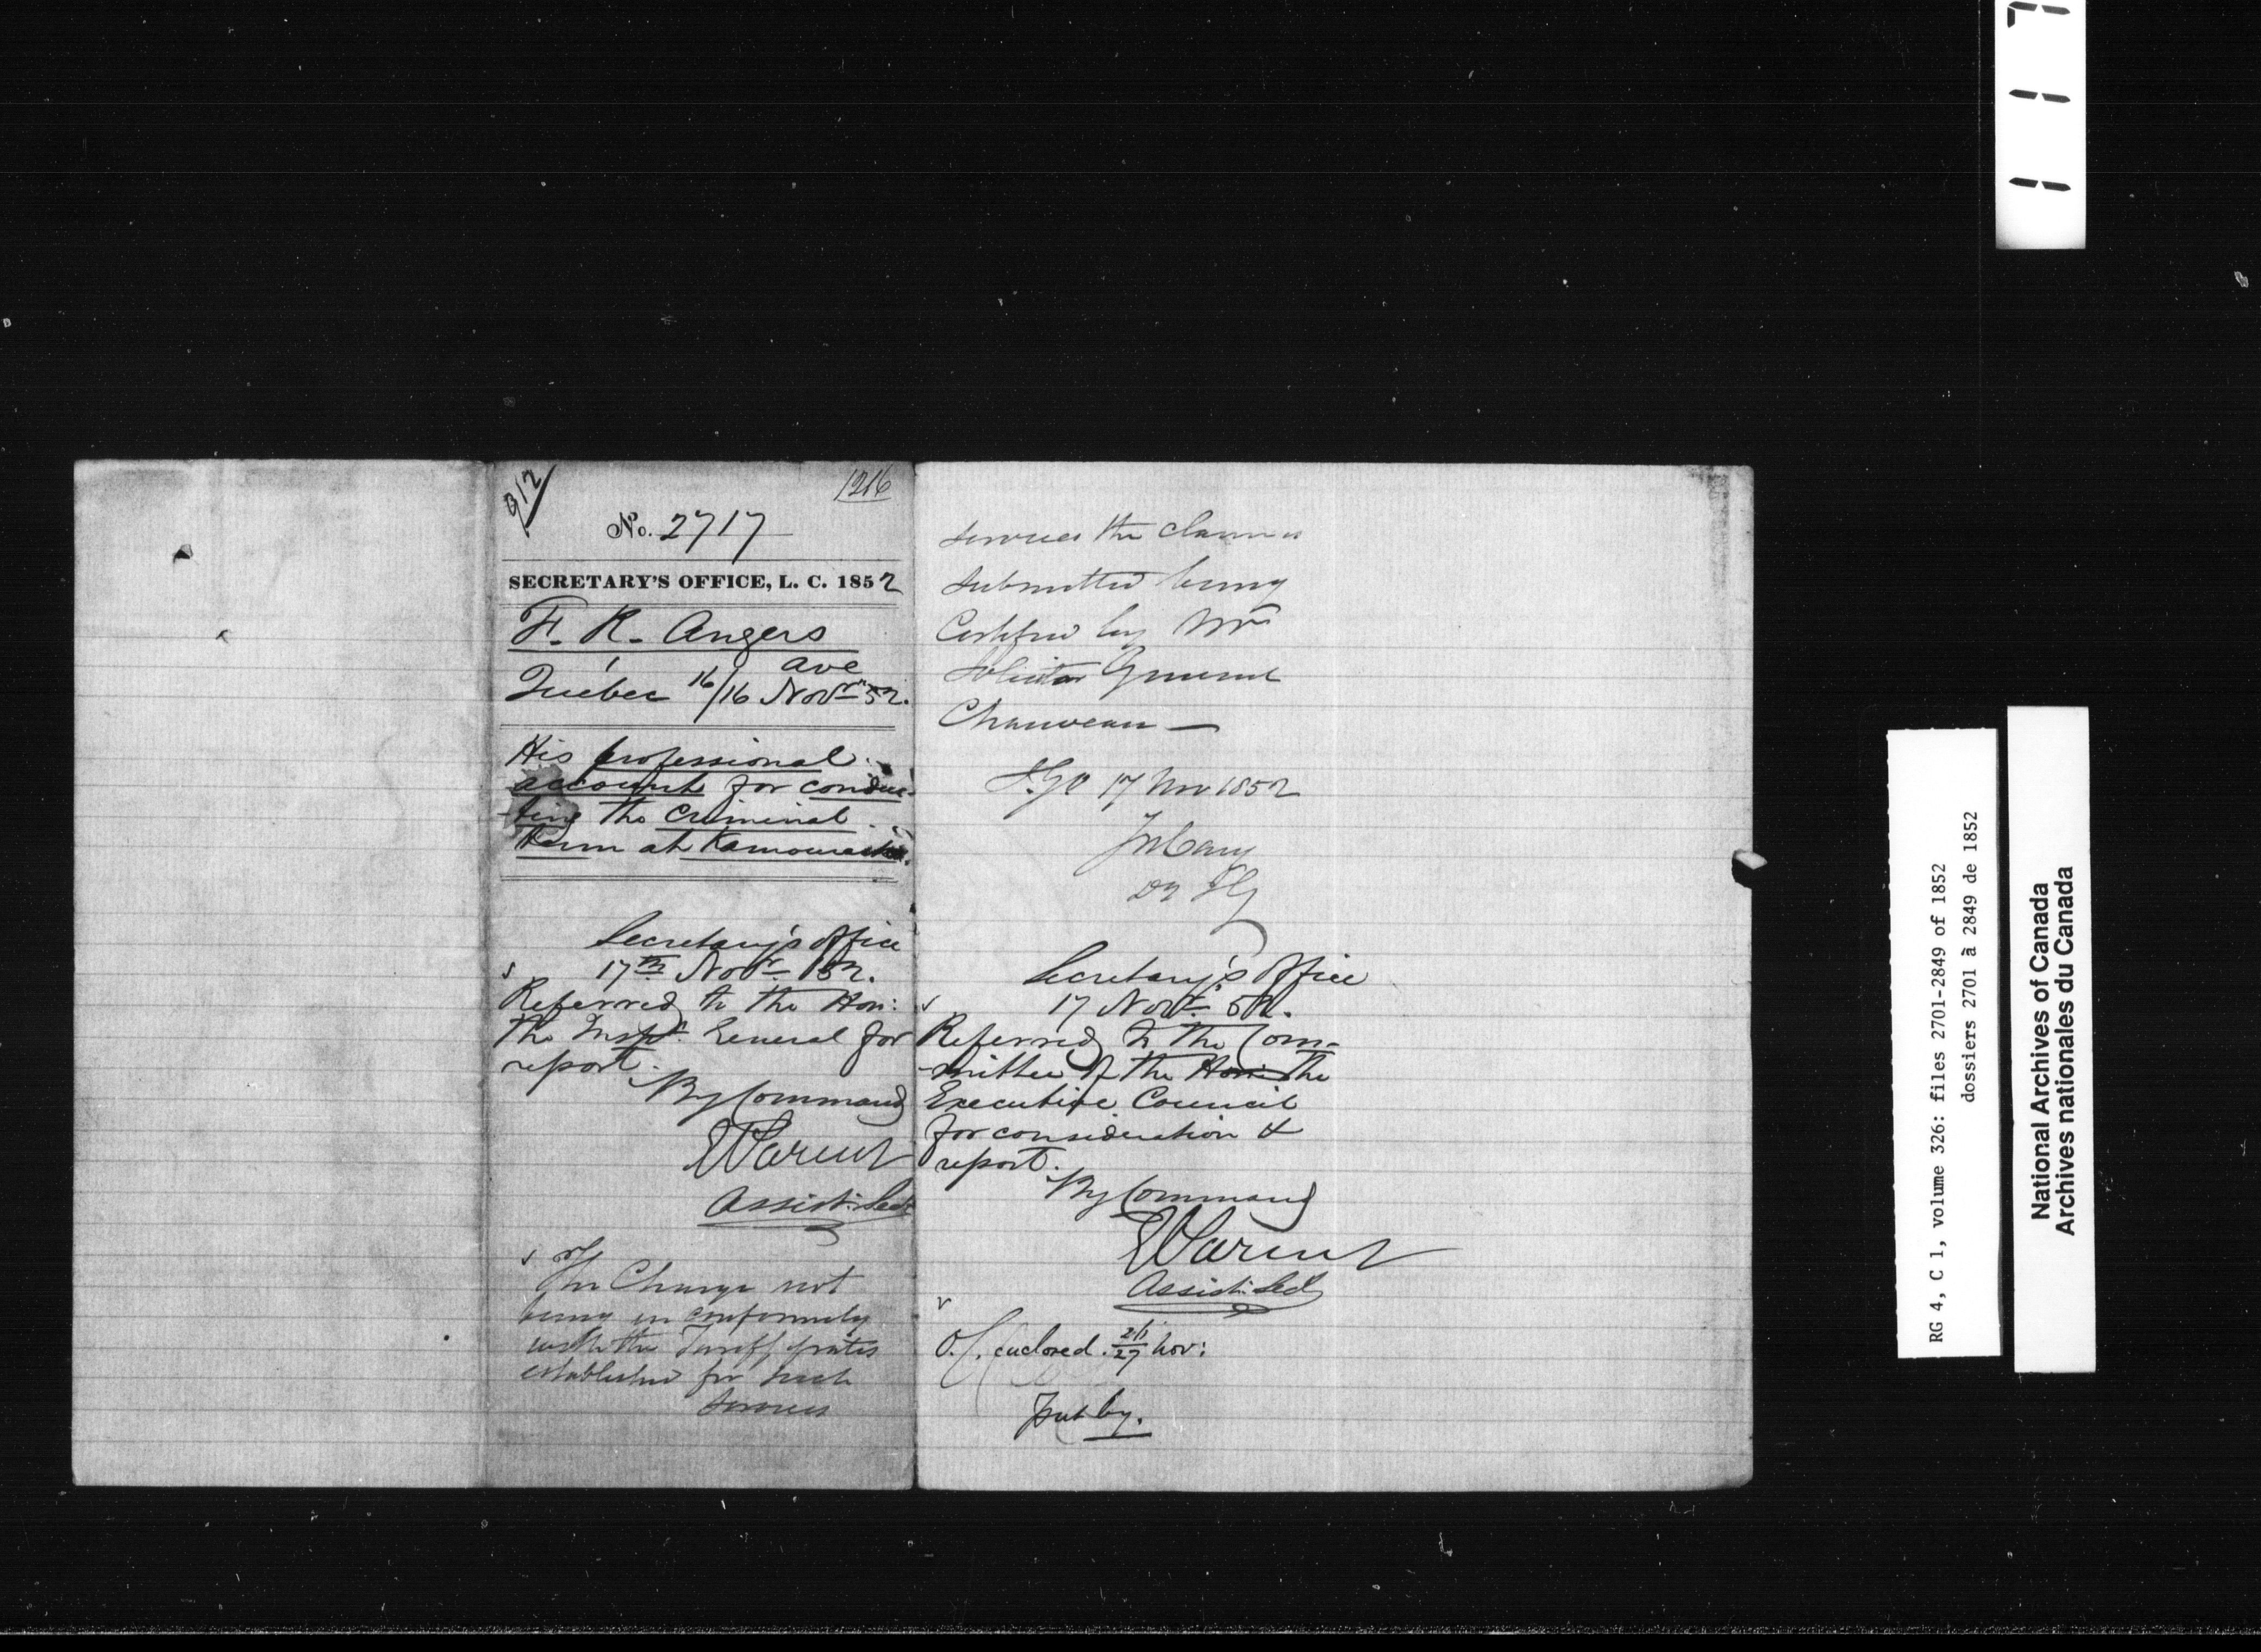 912
1216
No. 2717
SECRETARY'S OFFICE, L. C. 1852
F. R. Angers
ave
Québec 16/16 Novr 52.
His professional
account for conduc-
ting the Criminal
term at Kamouraska.
Secretary's Office
17th Novr 152.
Referred to the Hon:
the Inspr. General for
report.
By Command
E Parent
Assist: Secy
The Charge not
being in conformity
with the Tariff of rates
established for such
services
services the claim is
submitted being
Certified by Mr
Solicitor General
Chauveau —
I.G.O 17 Nov 1852
Jos Cary
DIG
Secretary's Office
17 Novr 52.
Referred to the Com-
mittee of the Hon: the
Executive Council
for consideration &
report.
By Command
E Parent
Assist: Secy
O.C. enclosed. 26/27 Nov:
Put by.
1 1 7
RG 4, C 1, volume 326: files 2701-2849 of 1852
dossiers 2701 à 2849 de 1852
National Archives of Canada
Archives nationales du Canada